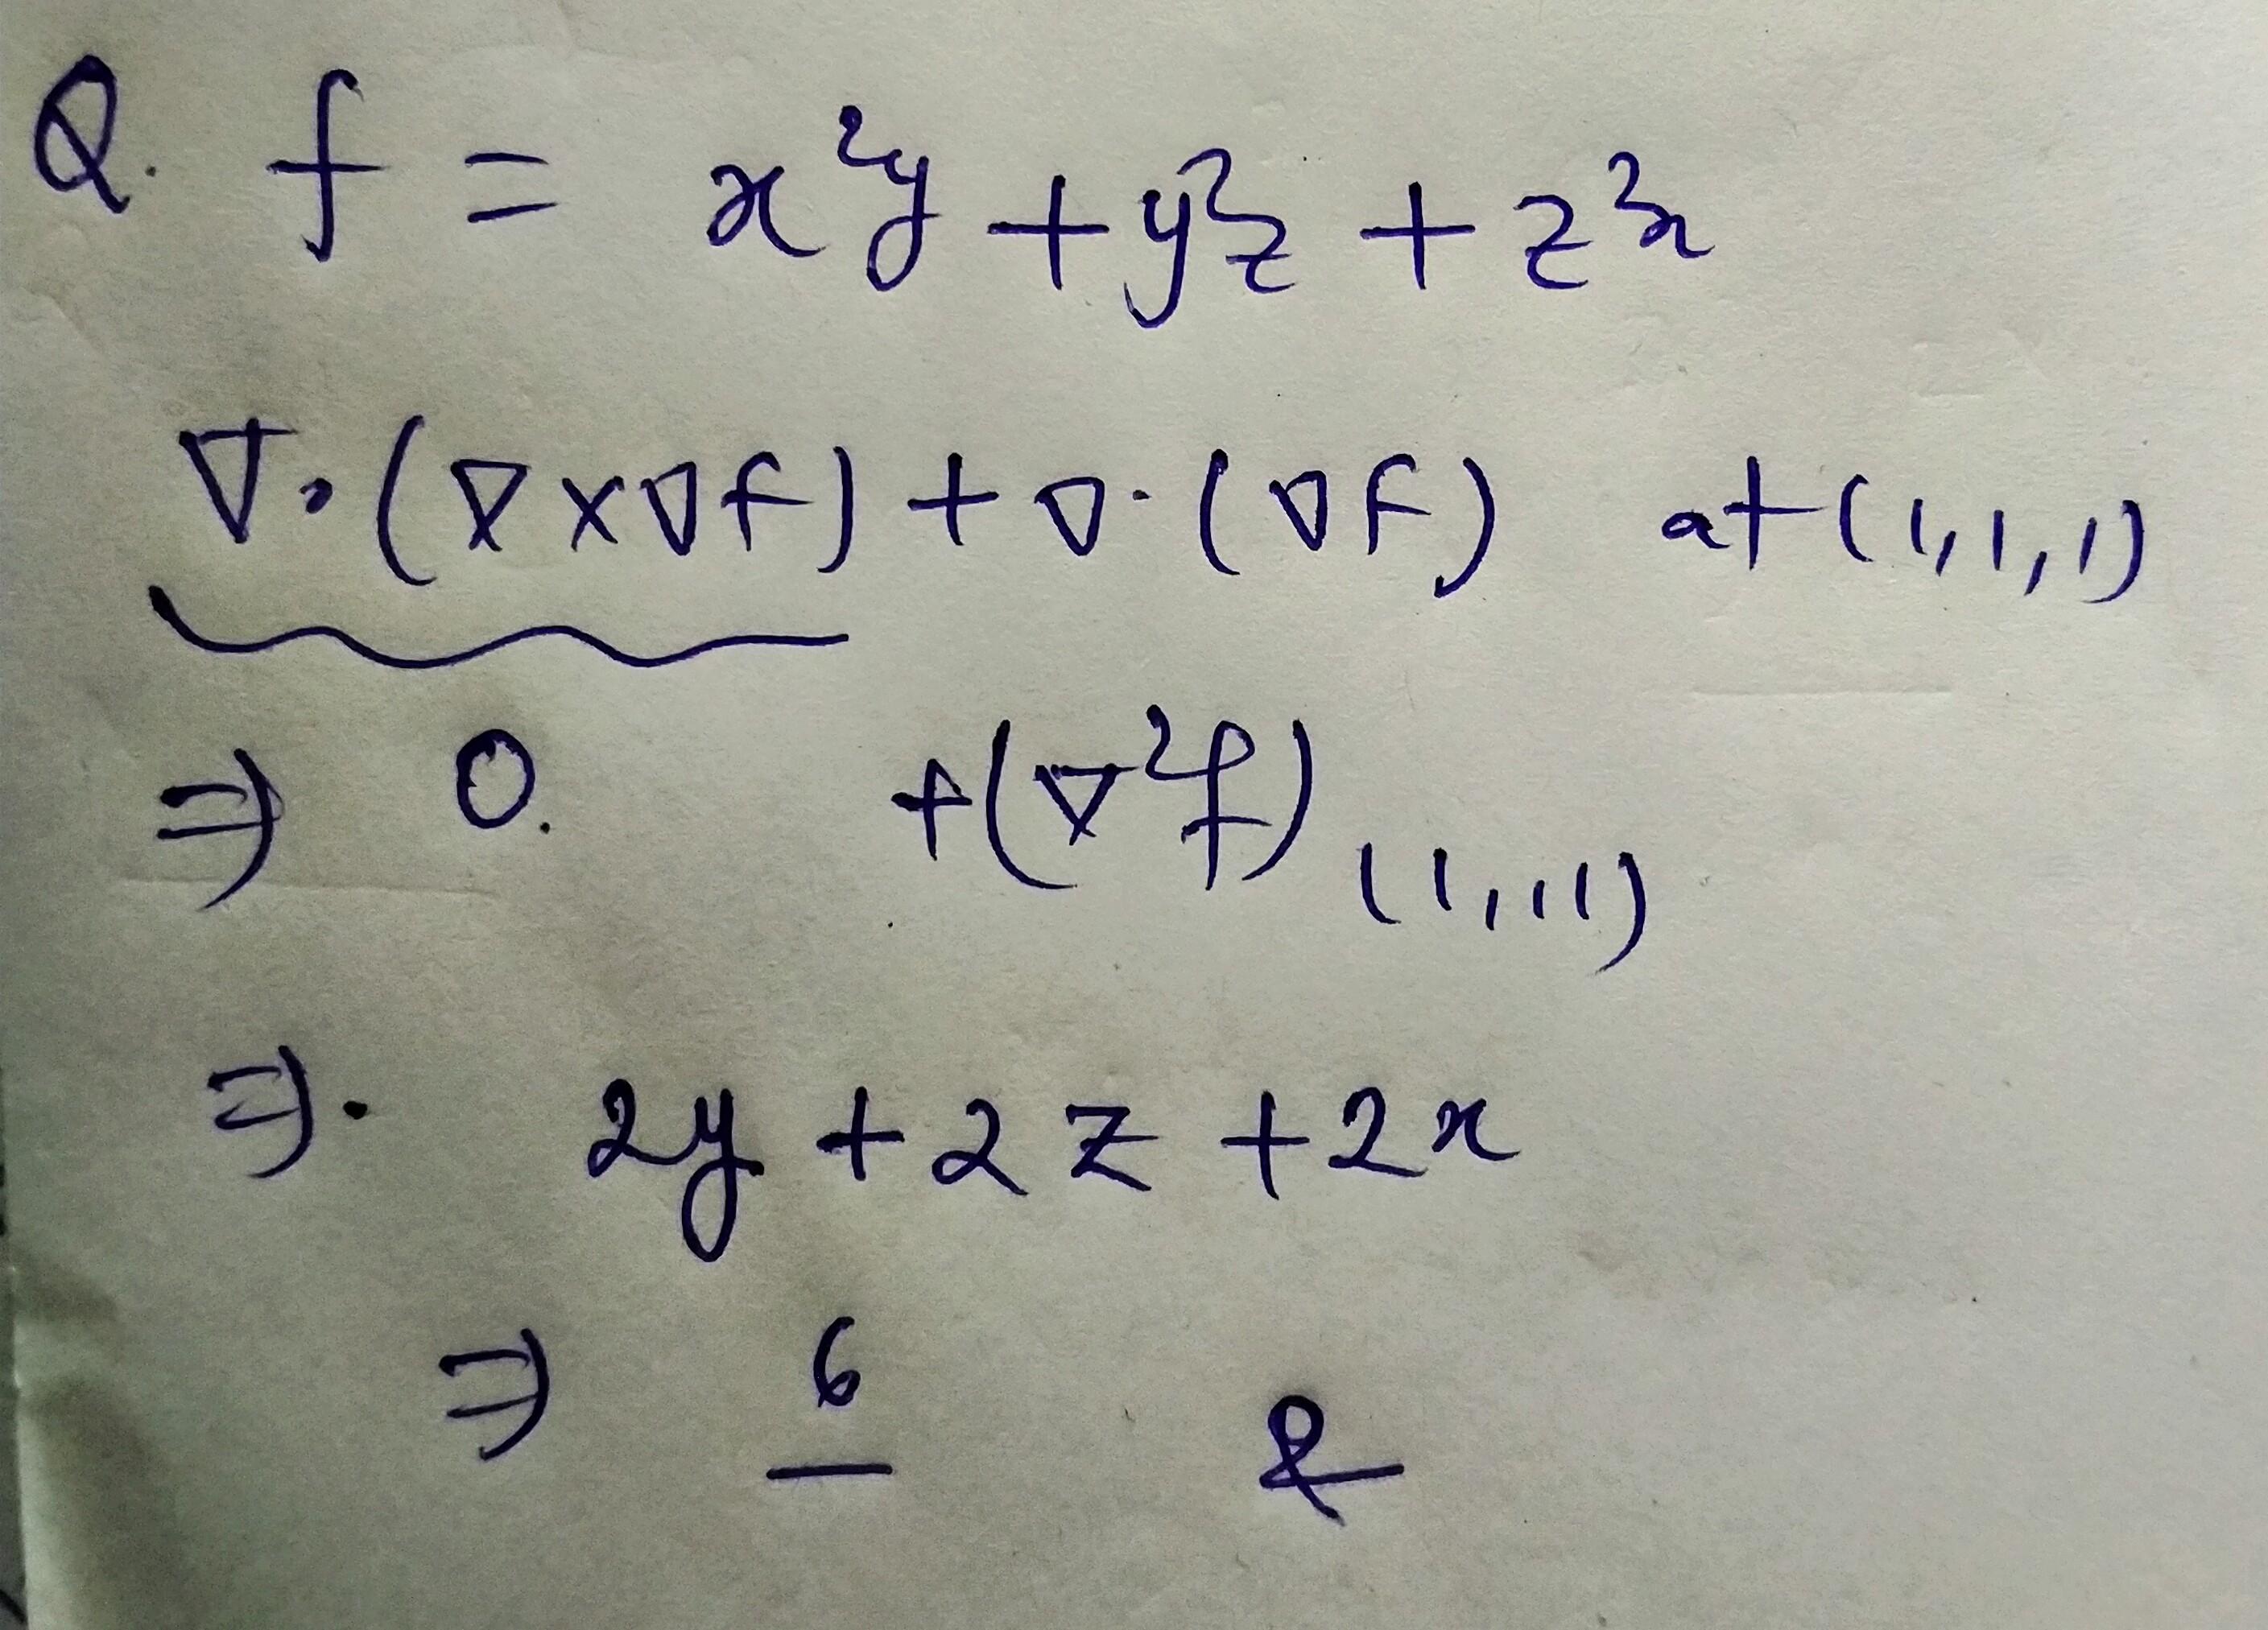 Q. f = x²y + y²z + z²x
∇·(∇×∇f) + ∇·(∇f) at (1,1,1)
⇒ 0. +(∇²f)(1,,11)
⇒. 2y + 2z + 2x
⇒ 6